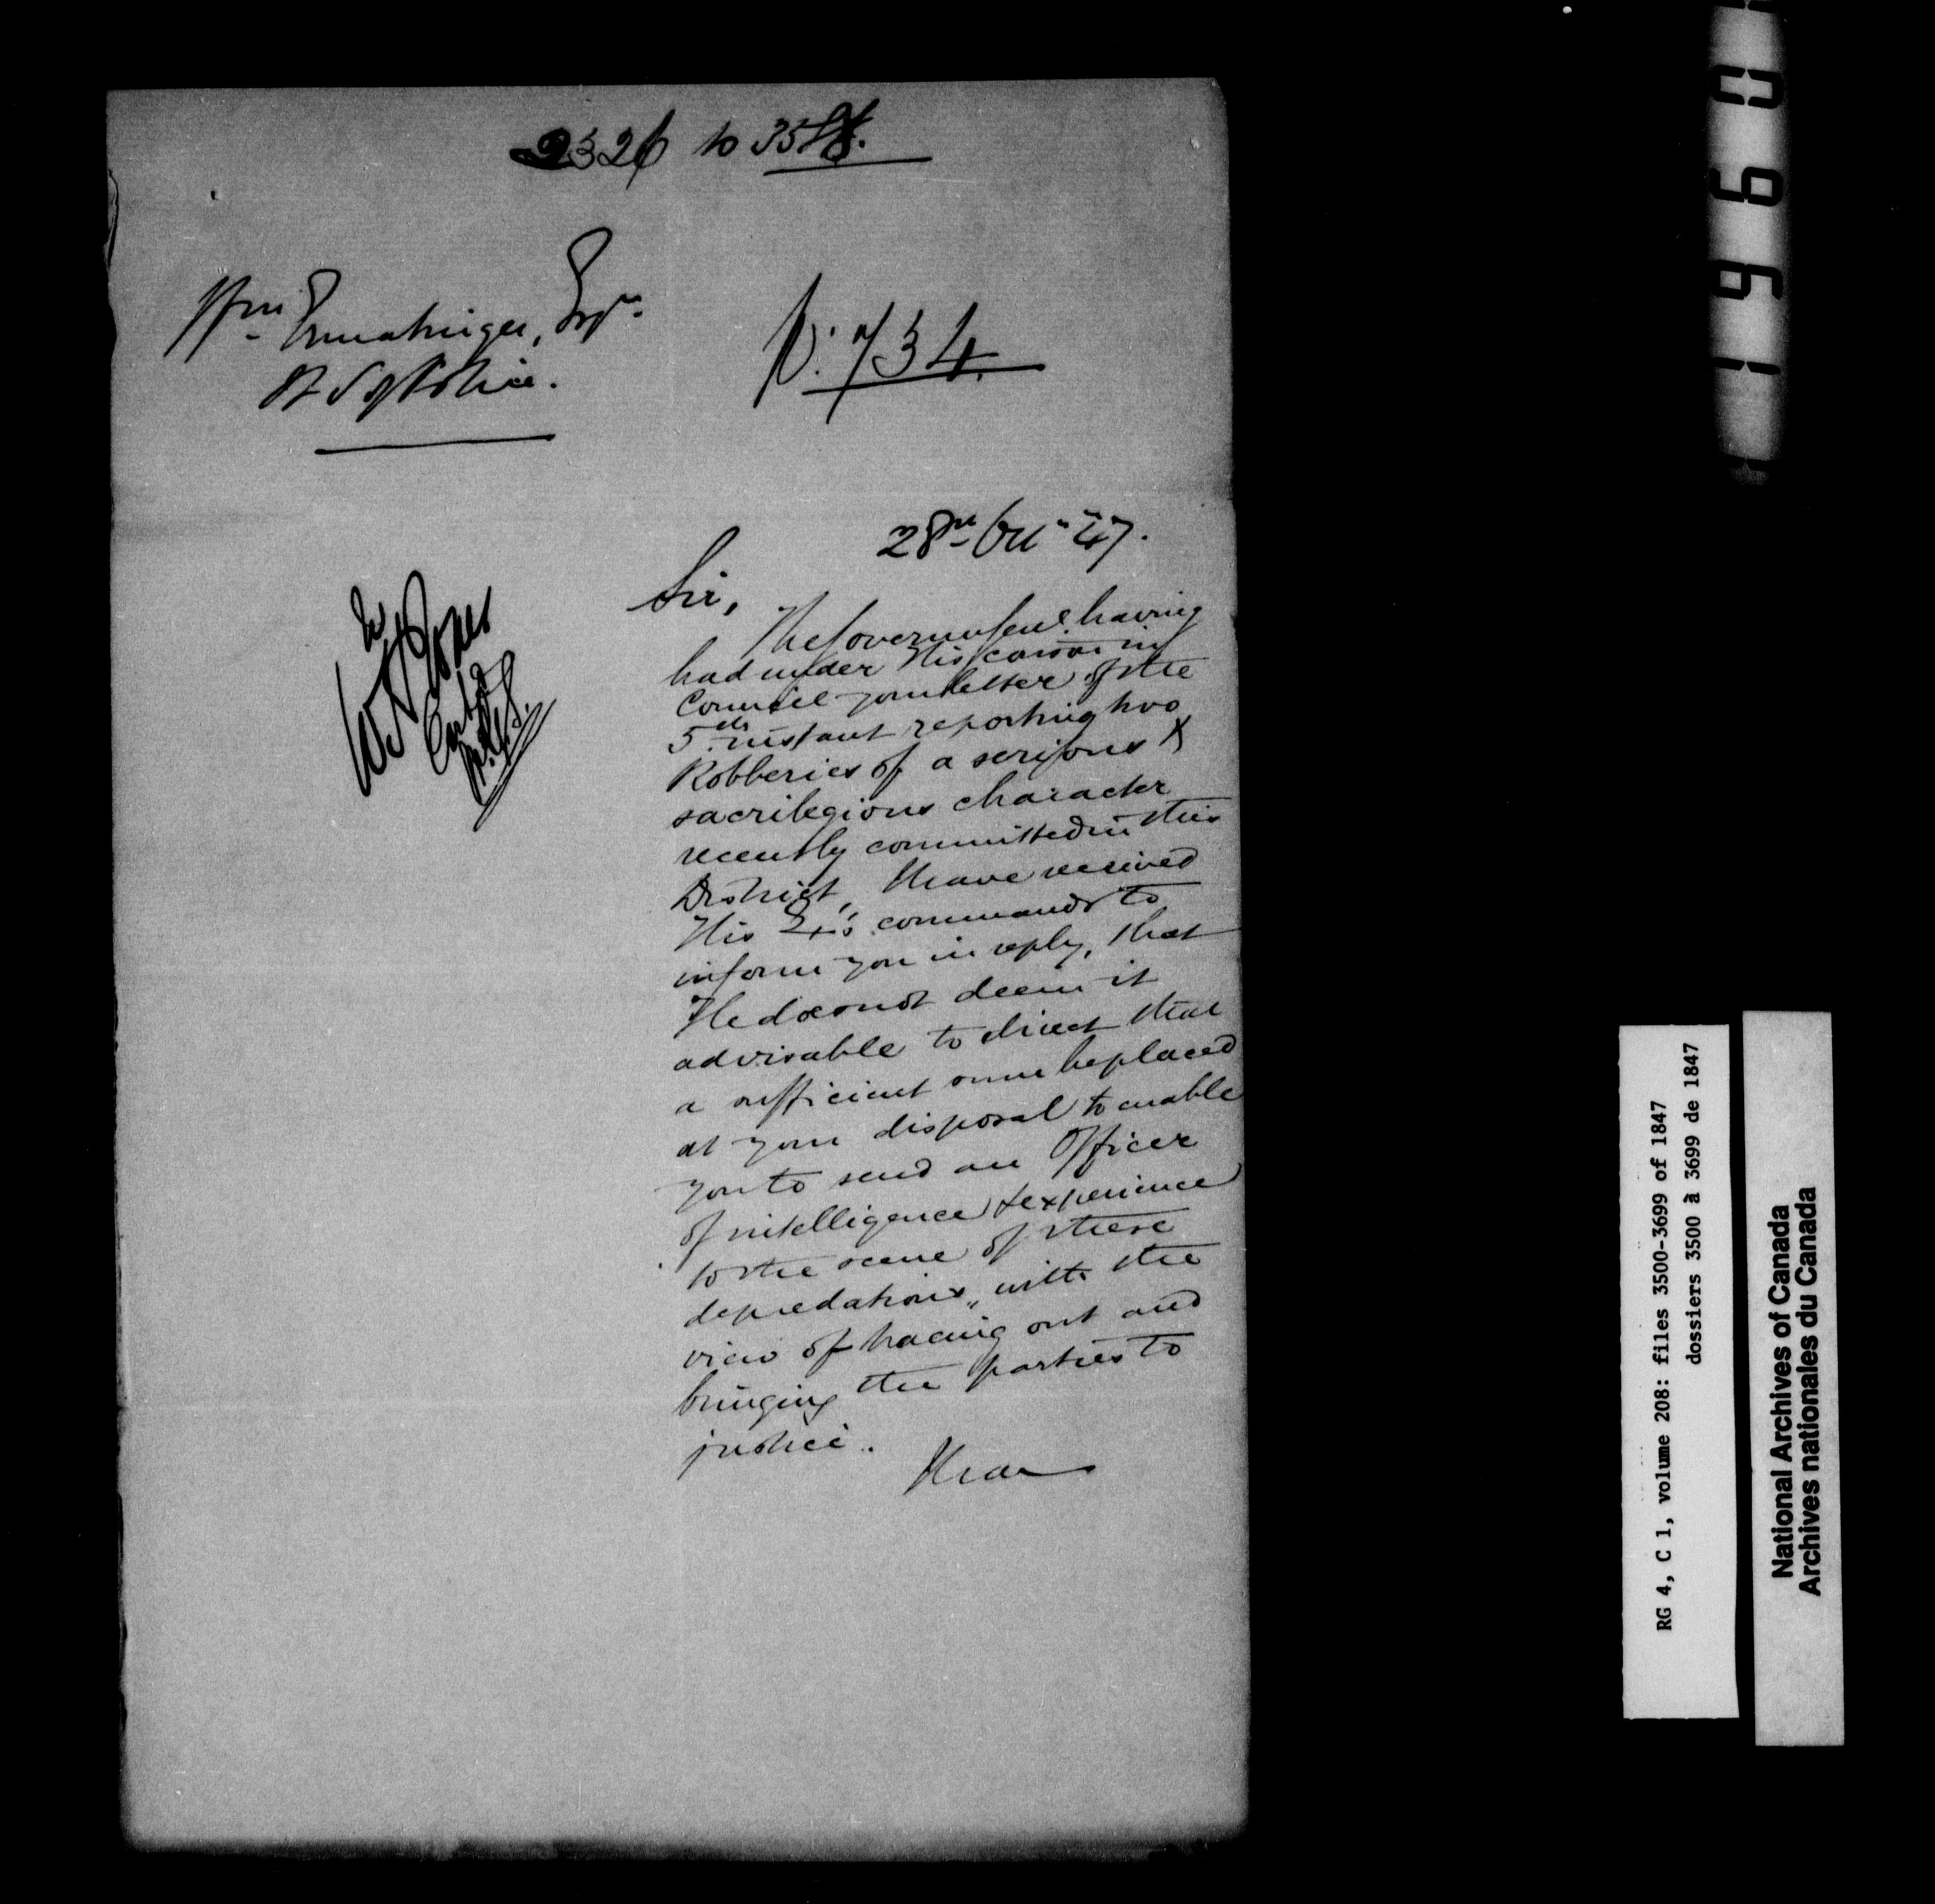 2326 to 35
Wm Ermatinger, Esqre
p. 734.
28th Oct 47.
Sir,
The Governor Genl. having
had under His conson in
Council your letter of the
5th instant reporting two
Robberies of a serious &
sacrilegious character
recently committed in this
District, I have received
His Ex's commands to
inform you in reply, that
He does not deem it
advisable to direct that
a sufficient sum be placed
at your disposal to enable
you to send an Officer
of intelligence & experience
to the scene of these
depredations, with the
view of tracing out and
bringing the parties to
justice.
I have
RG 4, C 1, volume 208: files 3500-3699 of 1847
dossiers 3500 à 3699 de 1847
National Archives of Canada
Archives nationales du Canada
19690